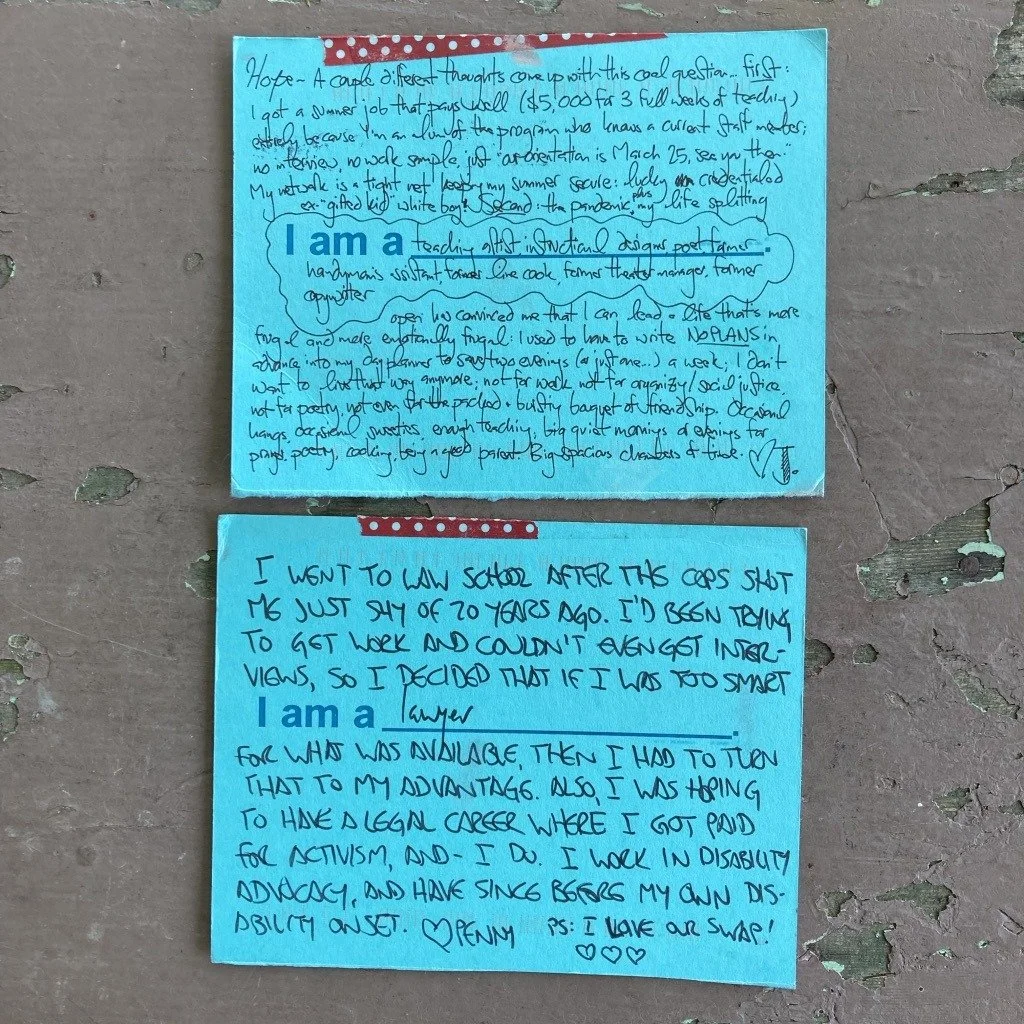 Hope – A couple different thoughts come up with this cool question... First:
I got a summer job that pays well ($5,000 for 3 full weeks of teaching)
entirely because I'm an alum of the program who knows a current staff member;
no interview, no work sample, just "orientation is March 25, see you then"
My network is a tight net keeping my summer secure: lucky credentialed
ex-"gifted kid" white boy! Second: the pandemic, plus my life splitting
I am a teaching artist instructional designer poet farmer.
handyman's assistant, former line cook, former theater manager, former
copywriter
open has convinced me that I can lead a life that's more
frugal and more emotionally frugal: I used to have to write NO PLANS in
advance into my day planner to save two evenings (or just one...) a week; I don't
want to live that way anymore; not for work not for organizing/social justice
not for poetry, not even for the packed + bursting bouquet of friendship. Occasional
hangs, occasional sweeties, enough teaching, big quiet mornings or evenings for
prayer, poetry, cooking, being a good parent. Big spacious chambers of time. ♡ J.
I WENT TO LAW SCHOOL AFTER THE COPS SHOT
ME JUST SHY OF 20 YEARS AGO. I'D BEEN TRYING
TO GET WORK AND COULDN'T EVEN GET INTER-
VIEWS, SO I DECIDED THAT IF I WAS TOO SMART
I am a lawyer.
FOR WHAT WAS AVAILABLE, THEN I HAD TO TURN
THAT TO MY ADVANTAGE. ALSO, I WAS HOPING
TO HAVE A LEGAL CAREER WHERE I GOT PAID
FOR ACTIVISM, AND - I DO. I WORK IN DISABILITY
ADVOCACY, AND HAVE SINCE BEFORE MY OWN DIS-
ABILITY ONSET. ♡ PENNY PS: I LOVE OUR SWAP!
♡♡♡